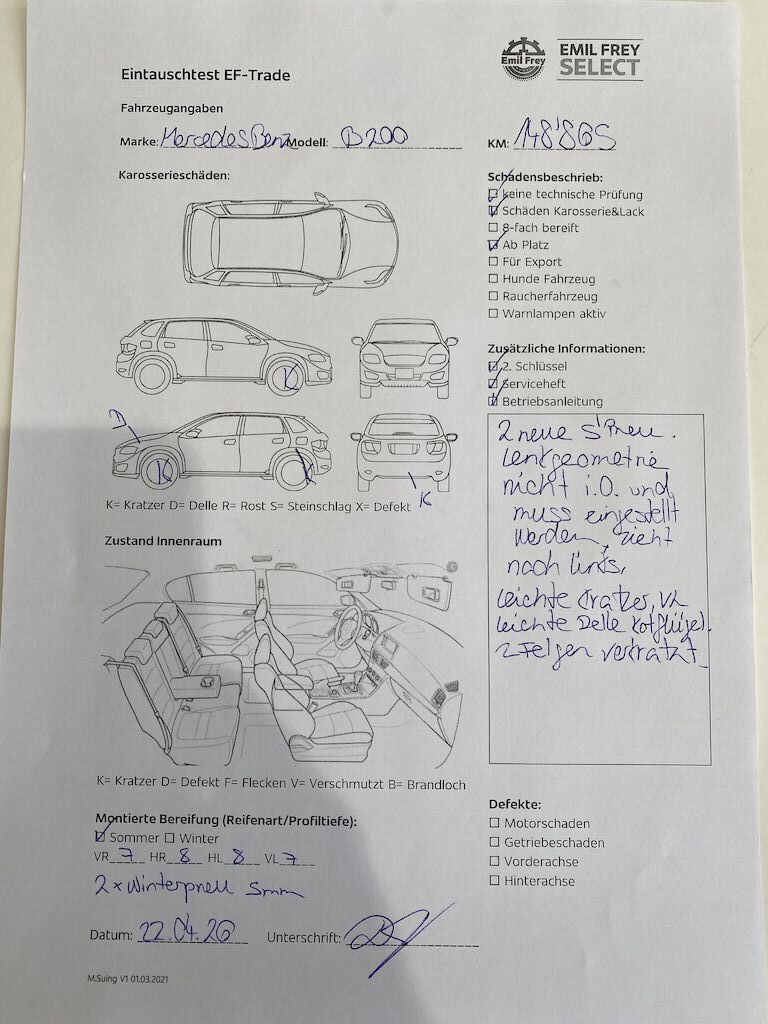 Emil Frey
EMIL FREY
SELECT
Eintauschtest EF-Trade
Fahrzeugangaben
Marke: Mercedes Benz Modell: B200 KM: 148'865
Karosserieschäden:
Schadensbeschrieb:
keine technische Prüfung
Schäden Karosserie&Lack
8-fach bereift
Ab Platz
Für Export
Hunde Fahrzeug
Raucherfahrzeug
Warnlampen aktiv
K
D
K K
K
K= Kratzer D= Delle R= Rost S= Steinschlag X= Defekt
Zusätzliche Informationen:
2. Schlüssel
Serviceheft
Betriebsanleitung
2 neue S'Pneu.
Lenkgeometrie
nicht i.O. und
muss eingestellt
werden, zieht
nach links,
leichte Kratzer, VL
leichte Delle Kotflügel.
2 Felgen verkratzt
Zustand Innenraum
K= Kratzer D= Defekt F= Flecken V= Verschmutzt B= Brandloch
Montierte Bereifung (Reifenart/Profiltiefe):
Sommer Winter
VR 7 HR 8 HL 8 VL 7
2x Winterpneu 5mm
Defekte:
Motorschaden
Getriebeschaden
Vorderachse
Hinterachse
Datum: 22.04.26 Unterschrift:
M.Suing V1 01.03.2021